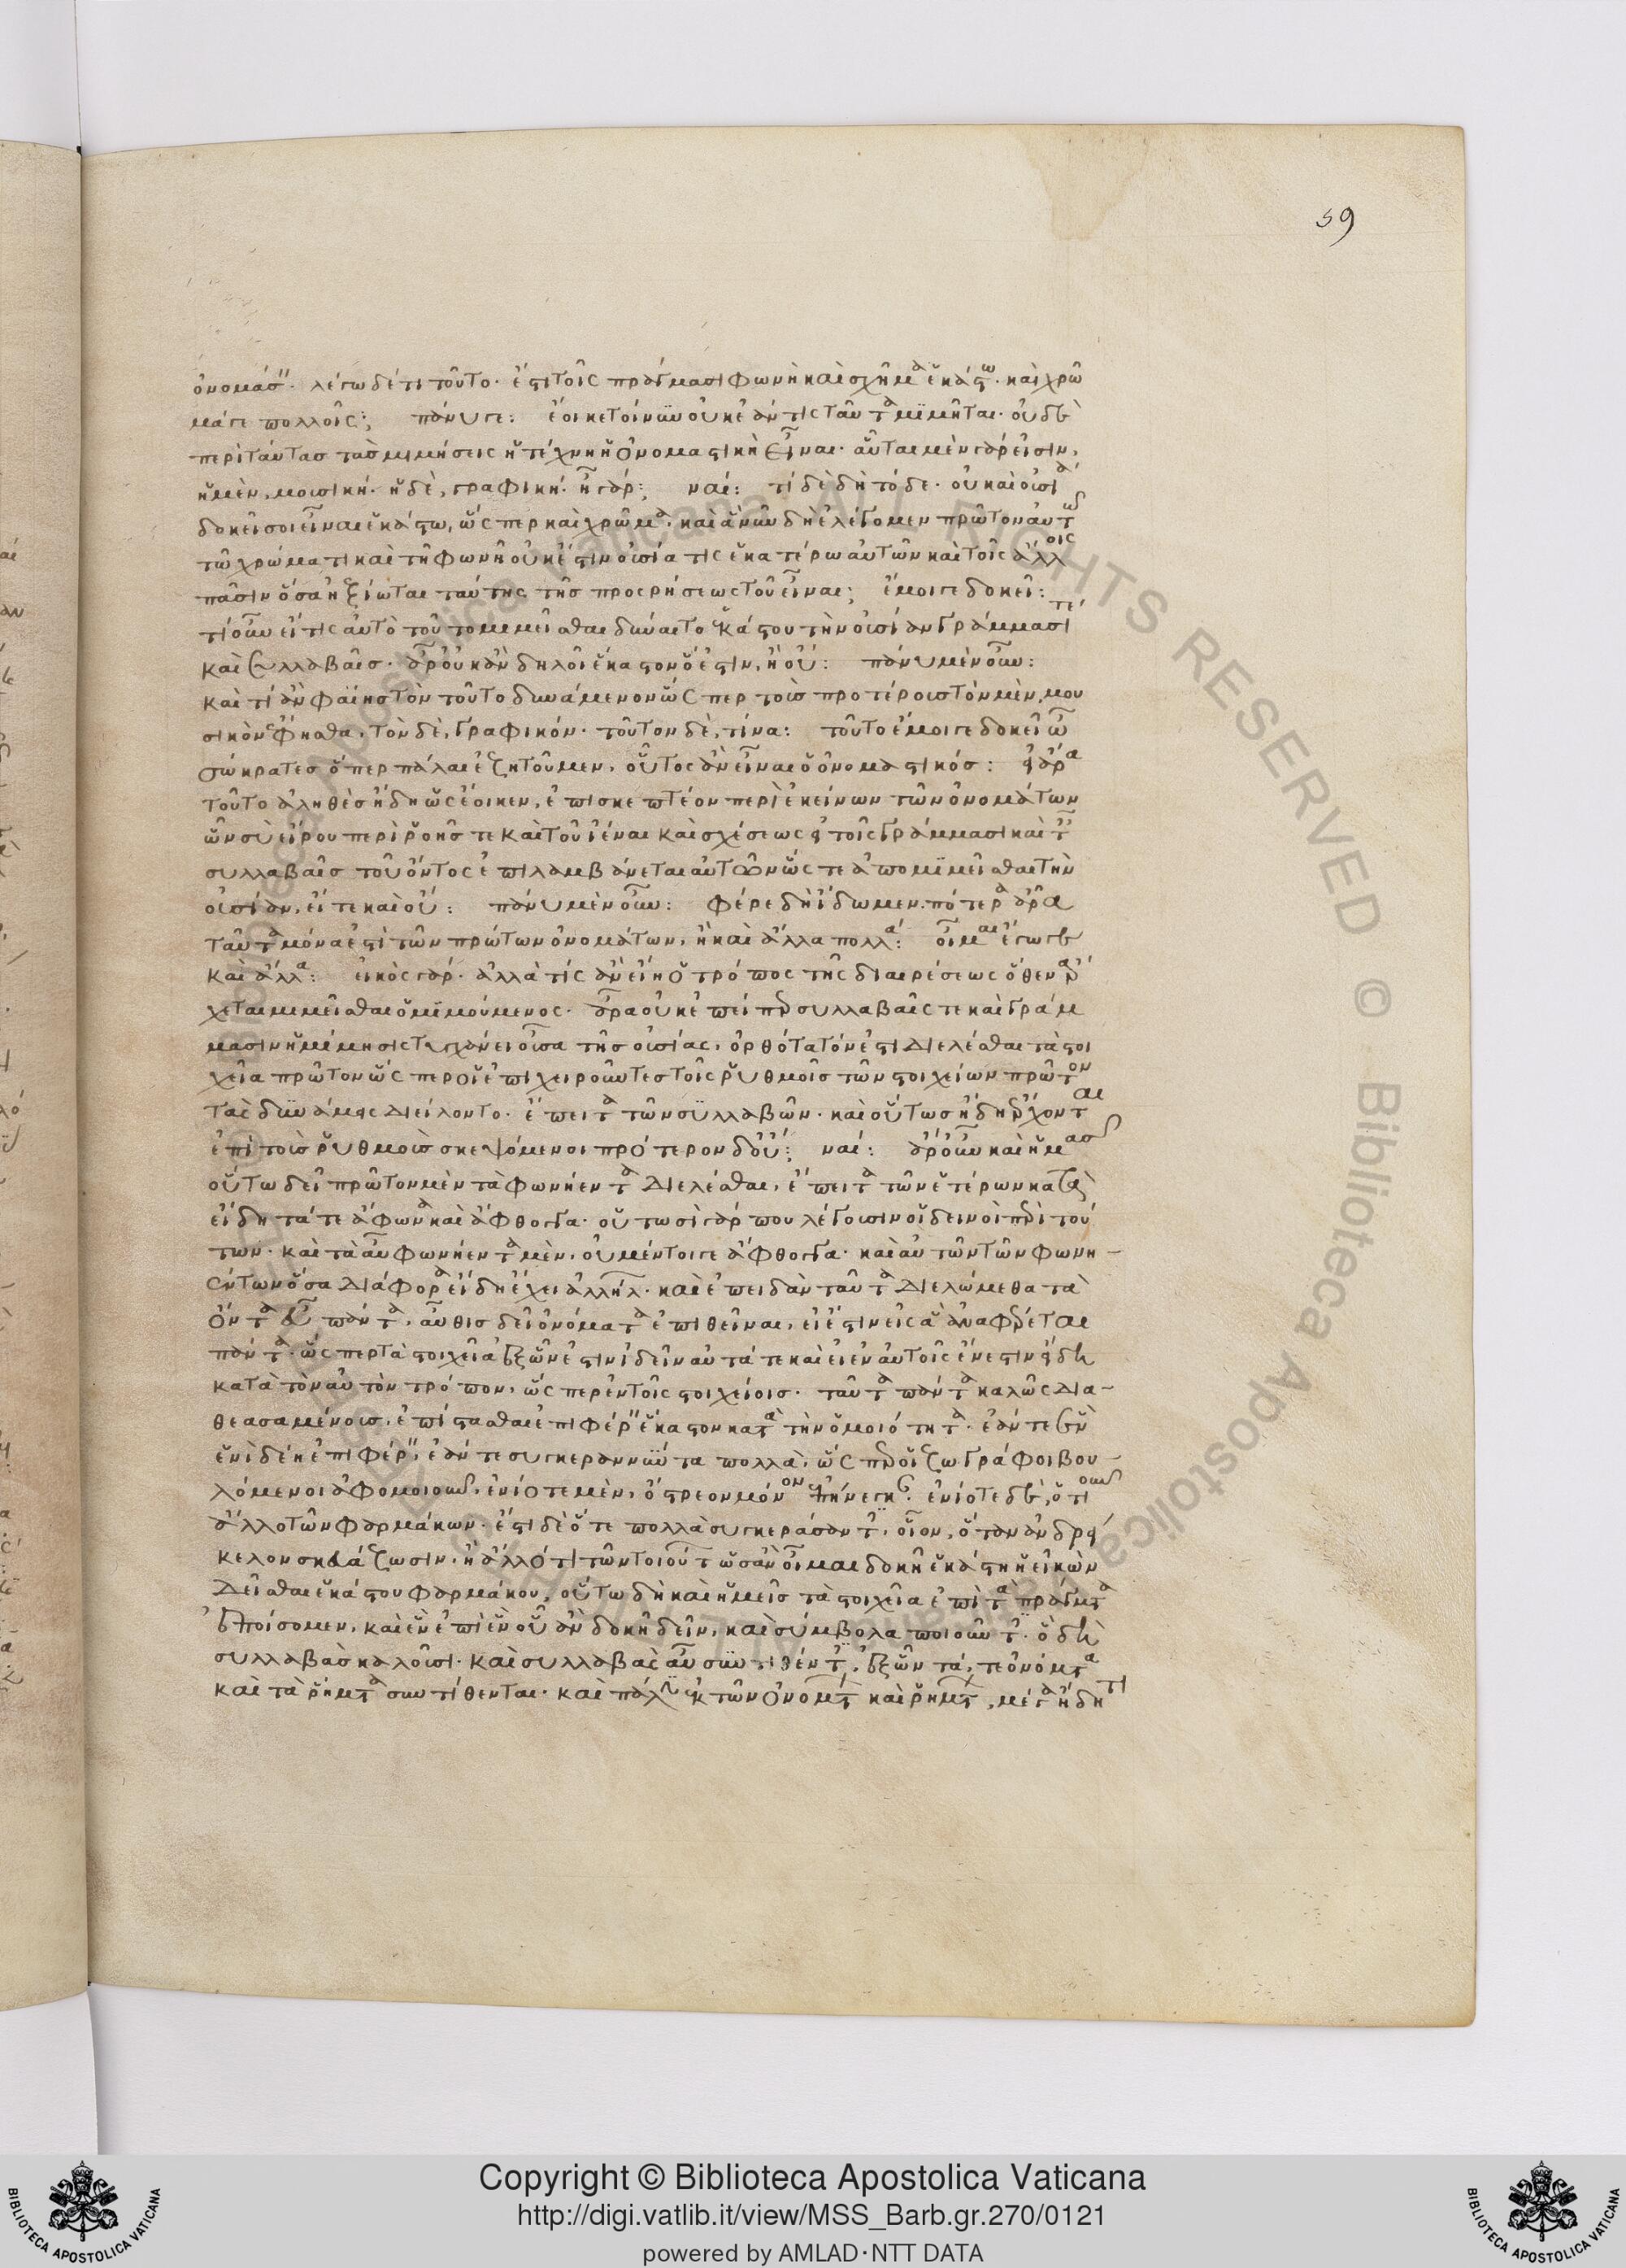 59
ὀνομάσειν. λέγω δέ τι τοῦτο. ἔστι τοῖς πράγμασι φωνὴ καὶ σχῆμα ἑκάστω. καὶ χρῶ
μά γε πολλοῖς; πάνυ γε: ἔοικε τοίνυν οὐκ ἐάν τις ταῦτα μιμῆται. οὐδὲ
περὶ ταύτας τὰς μιμήσεις ἡ τέχνη ἡ ὀνομαστικὴ εἶναι. αὗται μὲν γάρ εἰσιν,
ἡ μὲν, μουσική. ἡ δὲ, γραφική. ἦ γάρ; ναί: τί δὲ δὴ τόδε. οὐ καὶ οὐσία
δοκεῖ σοι εἶναι ἑκάστω, ὥσπερ καὶ χρῶμα. καὶ ἃ νῦν δὴ ἐλέγομεν πρῶτον αὐτῶ
τῶ χρώματι καὶ τῆ φωνῆ οὐκ ἔστιν οὐσία τις ἑκατέρω αὐτῶν καὶ τοῖς ἄλλοις
πᾶσιν ὅσα ἠξίωται ταύτης τῆς προσρήσεως τοῦ εἶναι; ἔμοιγε δοκεῖ:
τί οὖν εἴ τις αὐτὸ τοῦτο μιμεῖσθαι δύναιτο ἑκάστου τὴν οὐσίαν γράμμασί τε
καὶ συλλαβαῖς. ἆρ' οὐκ ἂν δηλοῖ ἕκαστον ὅ ἐστιν, ἢ οὔ: πάνυ μὲν οὖν:
καὶ τί ἂν φαίης τὸν τοῦτο δυνάμενον ὥσπερ τοὺς προτέρους τὸν μὲν, μου
σικὸν ἔφησθα, τὸν δὲ, γραφικόν. τοῦτον δὲ, τίνα: τοῦτο ἔμοιγε δοκεῖ ὦ
σώκρατες ὅπερ πάλαι ἐζητοῦμεν, οὗτος ἂν εἶναι ὁ ὀνομαστικός: εἰ ἄρα
τοῦτο ἀληθὲς ἤδη ὡς ἔοικεν, ἐπισκεπτέον περὶ ἐκείνων τῶν ὀνομάτων
ὧν σὺ εἴρου περὶ ῥοῆς τε καὶ τοῦ ἰέναι καὶ σχέσεως εἰ τοῖς γράμμασι καὶ ταῖς
συλλαβαῖς τοῦ ὄντος ἐπιλαμβάνεται αὐτῶν ὥστε ἀπομιμεῖσθαι τὴν
οὐσίαν, εἴτε καὶ οὔ: πάνυ μὲν οὖν: φέρε δὴ ἴδωμεν. πότερα ἄρα
ταῦτα μόνα ἐστὶ τῶν πρώτων ὀνομάτων, ἢ καὶ ἄλλα πολλά: οἶμαι ἔγωγε
καὶ ἄλλα: εἰκὸς γάρ. ἀλλὰ τίς ἂν εἴη ὁ τρόπος τῆς διαιρέσεως ὅθεν ἄρ
χεται μιμεῖσθαι ὁ μιμούμενος. ἆρα οὐκ ἐπείπερ συλλαβαῖς τε καὶ γράμ
μασιν ἡ μίμησις τυγχάνει οὖσα τῆς οὐσίας, ὀρθότατόν ἐστι διελέσθαι τὰ στοι
χεῖα πρῶτον ὥσπερ οἱ ἐπιχειροῦντες τοῖς ῥυθμοῖς τῶν στοιχείων πρῶτον
τὰς δυνάμεις διείλοντο. ἔπειτα τῶν συλλαβῶν. καὶ οὕτως ἤδη ἔρχονται
ἐπὶ τοὺς ῥυθμοὺς σκεψόμενοι πρότερον δ' οὔ; ναί: ἆρ' οὖν καὶ ἡμᾶς
οὕτω δεῖ πρῶτον μὲν τὰ φωνήεντα διελέσθαι, ἔπειτα τῶν ἑτέρων κατὰ
εἴδη τά τε ἄφωνα καὶ ἄφθογγα. οὑτωσὶ γάρ που λέγουσιν οἱ δεινοὶ περὶ τού
των. καὶ τὰ αὖ φωνήεντα μὲν, οὐ μέντοι γε ἄφθογγα. καὶ αὐτῶν τῶν φωνη-
έντων ὅσα διάφορα εἴδη ἔχει ἀλλήλων. καὶ ἐπειδὰν ταῦτα διελώμεθα τὰ
ὄντα εὖ πάντα, αὖθις δεῖ ὀνόματα ἐπιθεῖναι, εἰ ἔστιν εἰς ἃ ἀναφέρεται
πάντα. ὥσπερ τὰ στοιχεῖα ἐξ ὧν ἔστιν ἰδεῖν αὐτά τε καὶ εἰ ἐν αὐτοῖς ἔνεστιν εἴδη
κατὰ τὸν αὐτὸν τρόπον, ὥσπερ ἐν τοῖς στοιχείοις. ταῦτα πάντα καλῶς δια-
θεασαμένους, ἐπίστασθαι ἐπιφέρειν ἕκαστον κατὰ τὴν ὁμοιότητα. ἐάν τε ἓν
ἑνὶ δέη ἐπιφέρειν, ἐάν τε συγκεραννύντα πολλὰ, ὥσπερ οἱ ζωγράφοι βου-
λόμενοι ἀφομοιοῦν, ἐνίοτε μὲν, ὄστρεον μόνον ἐπήνεγκαν. ἐνίοτε δὲ, ὁτιοῦν
ἄλλο τῶν φαρμάκων. ἔστι δὲ ὅτε πολλὰ συγκεράσαντες. οἷον, ὅταν ἀνδρεί
κελον σκευάζωσιν. ἢ ἄλλό τι τῶν τοιούτων ὡς ἂν οἶμαι δοκῆ ἑκάστη ἡ εἰκὼν
δεῖσθαι ἑκάστου φαρμάκου, οὕτω δὴ καὶ ἡμεῖς τὰ στοιχεῖα ἐπὶ τὰ πράγματα
ἐποίσομεν, καὶ ἓν ἐπὶ ἓν οὗ ἂν δοκῆ δεῖν, καὶ σύμβολα ποιοῦντες. ὃ δὴ
συλλαβὰς καλοῦσι. καὶ συλλαβὰς αὖ συντιθέντες, ἐξ ὧν τά, τε ὀνόματα
καὶ τὰ ῥήματα συντίθενται. καὶ πάλιν ἐκ τῶν ὀνομάτων καὶ ῥημάτων, μέγα ἤδη τι
Copyright © Biblioteca Apostolica Vaticana
http://digi.vatlib.it/view/MSS_Barb.gr.270/0121
powered by AMLAD·NTT DATA